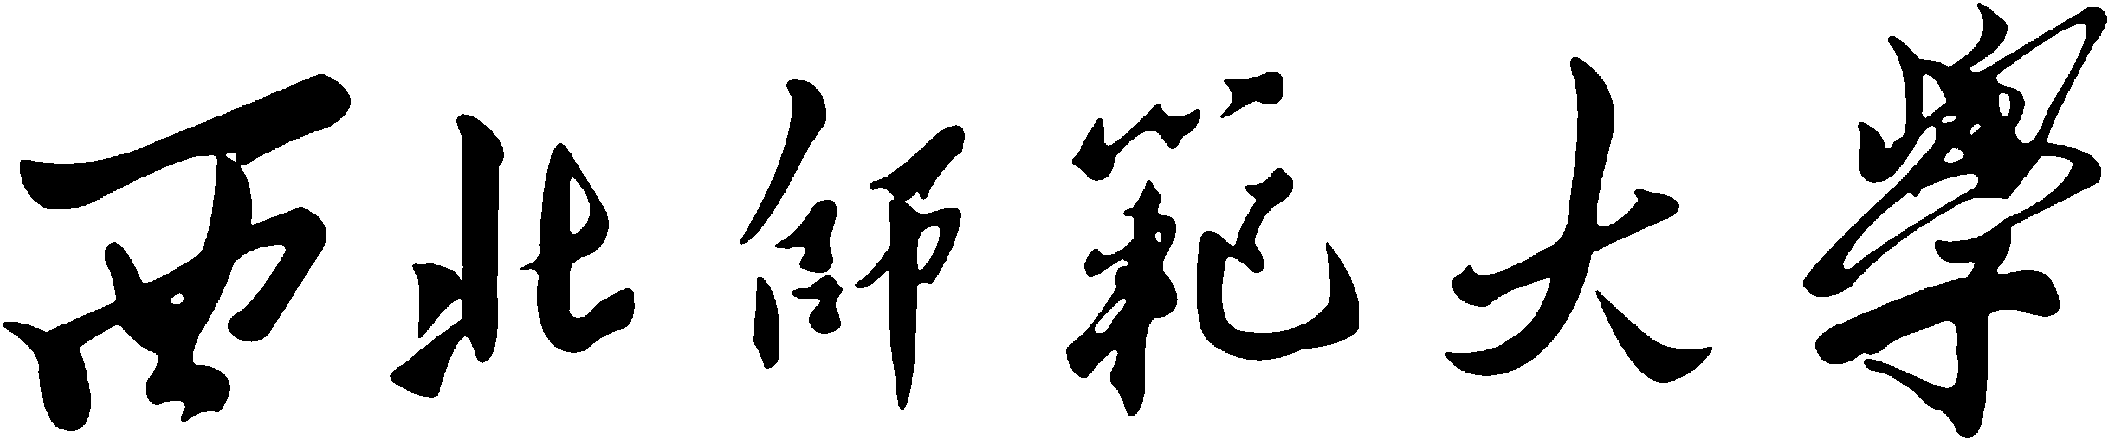 西北师範大學